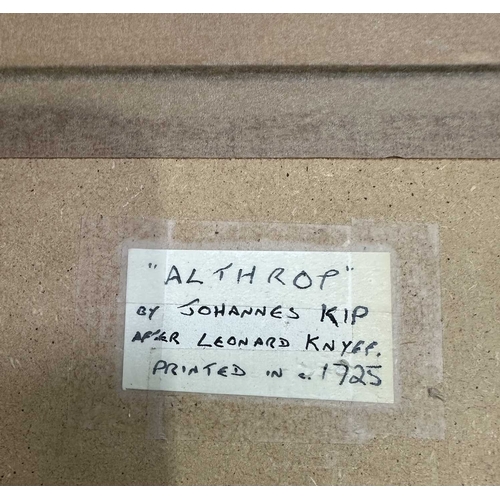 "ALTHROP"
BY JOHANNES KIP
AFTER LEONARD KNYFF.
PRINTED IN c. 1725